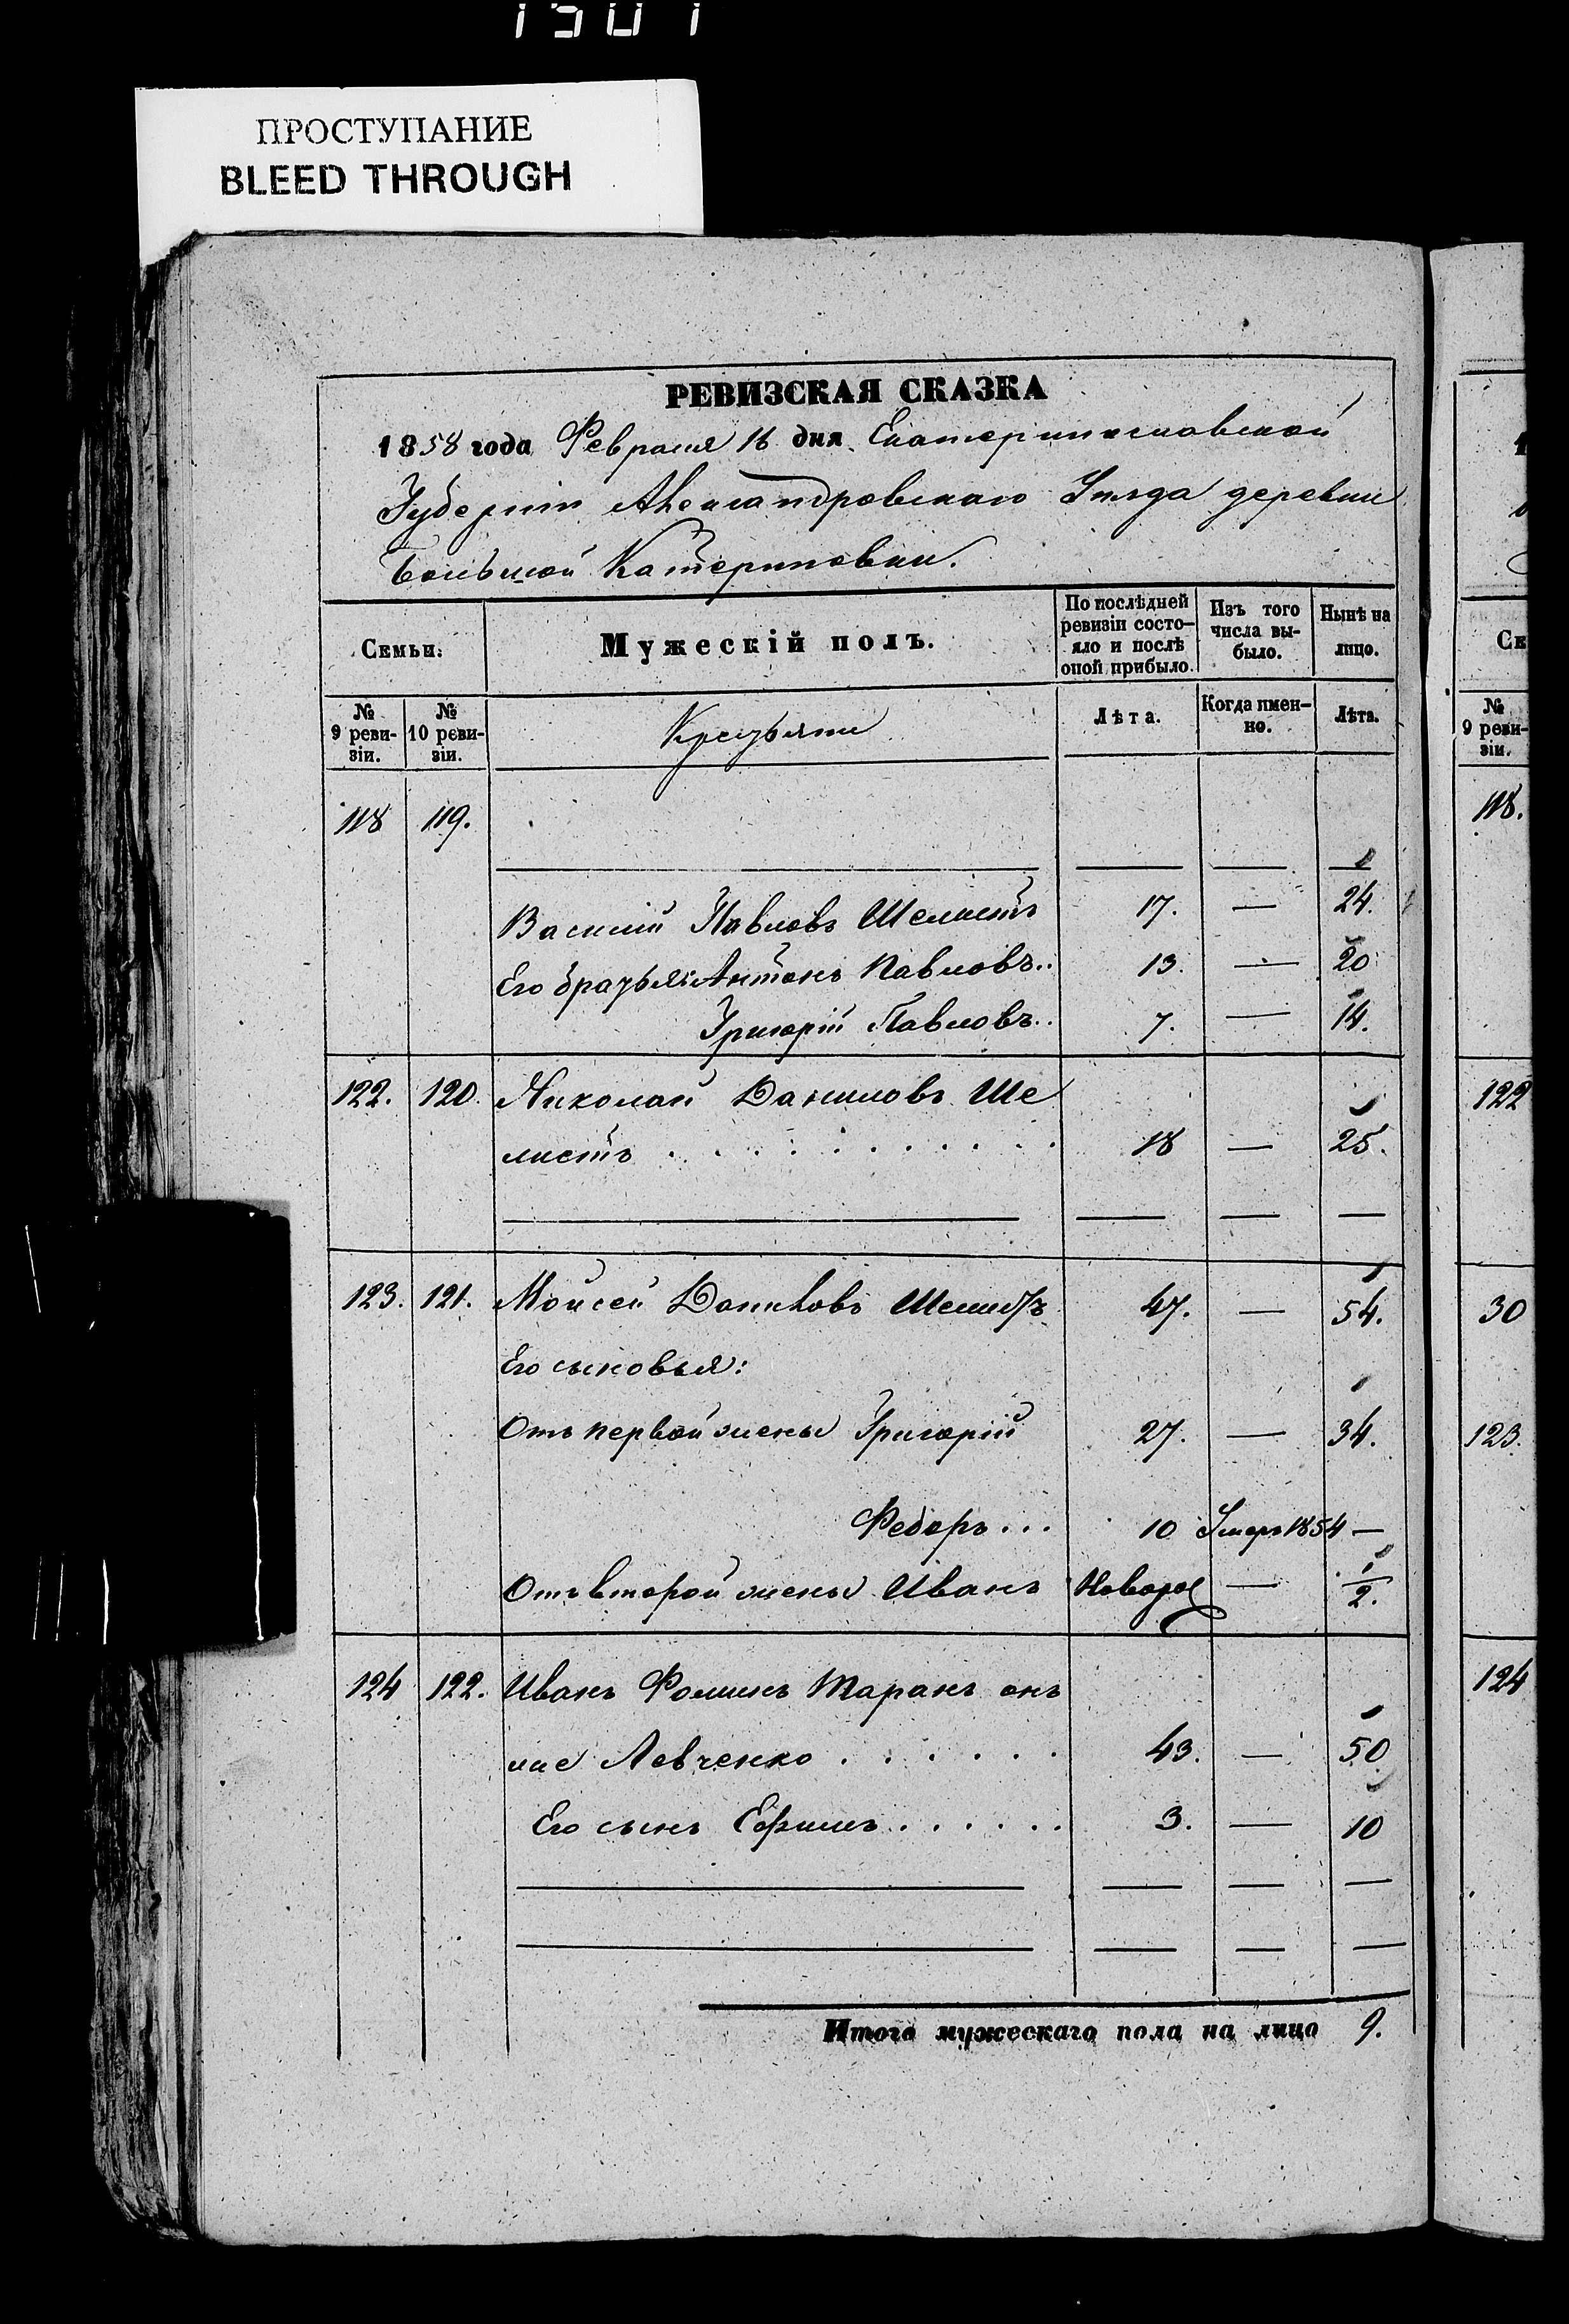 1501
ПРОСТУПАНИЕ
BLEED THROUGH
РЕВИЗСКАЯ СКАЗКА
1858 года Февраля 16 дня Екатеринославской
Губерніи Александровскаго Уѣзда деревни
Большой Катериновки.
Семьи. Мужескій полъ. По послѣдней ревизіи состо-яло и послѣ оной прибыло. Изъ того числа вы-было. Нынѣ на лицо.
№ 9 реви-зіи. № 10 реви-зіи. Крестьяне Лѣта. Когда имен-но. Лѣта.
118 119.
Василій Павловъ Шелистъ 17. — 24.
Его братья: Антонъ Павловъ.. 13. — 20
Григорій Павловъ.. 7. — 14.
122. 120. Николай Даниловъ Ше
листъ . . . . . . . . . . 18 — 25.
123. 121. Мойсей Даниловъ Шелистъ 47. — 54.
Его сыновья:
Отъ первой жены Григорій 27. — 34.
Федоръ... 10 Умеръ 1854 —
Отъ второй жены Иванъ Новорож — 1/2.
124 122. Иванъ Фоминъ Таранъ онъ
же Левченко . . . . . . 43. — 50.
Его сынъ Ефимъ . . . . . . 3. — 10
Итого мужескаго пола на лицо 9.
Се
№ 9 реви-зіи.
118.
122
30
123.
124